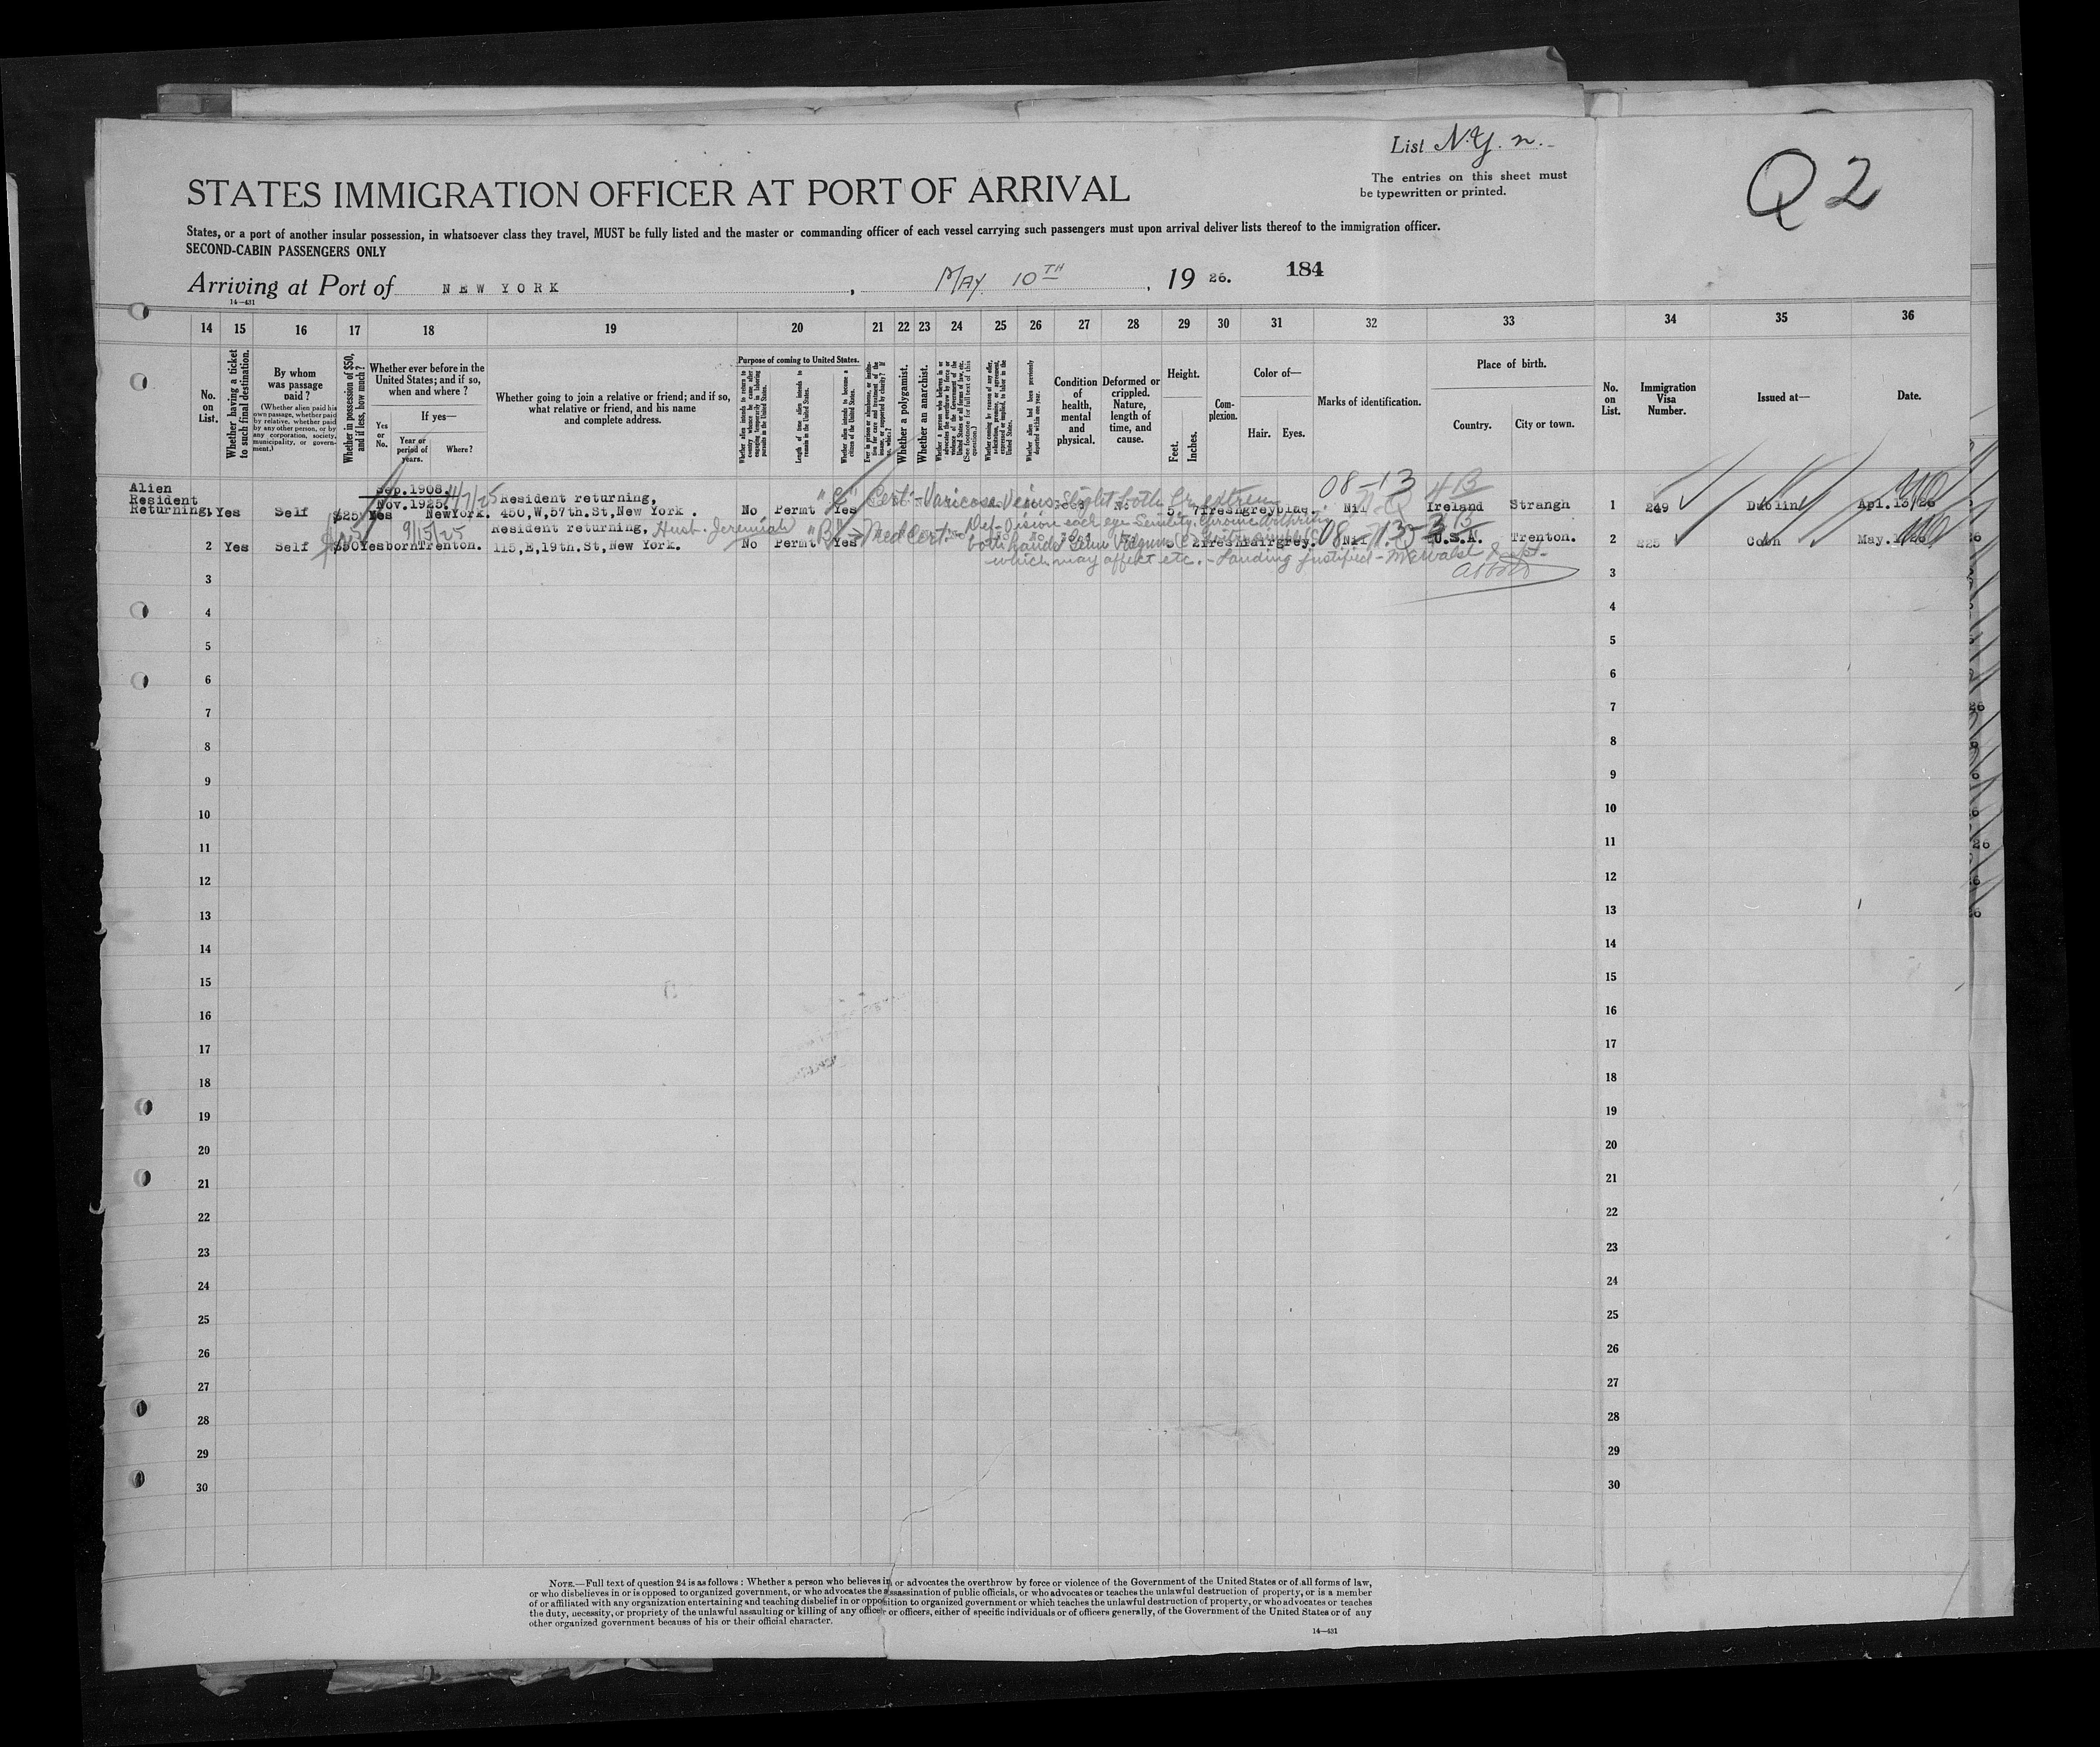 List N.Y. n.
The entries on this sheet must
be typewritten or printed.
Q 2
STATES IMMIGRATION OFFICER AT PORT OF ARRIVAL
States, or a port of another insular possession, in whatsoever class they travel, MUST be fully listed and the master or commanding officer of each vessel carrying such passengers must upon arrival deliver lists thereof to the immigration officer.
SECOND-CABIN PASSENGERS ONLY
Arriving at Port of NEW YORK, MAY 10TH, 1926. 184
14—431
14 15 16 17 18 19 20 21 22 23 24 25 26 27 28 29 30 31 32 33 34 35 36
No. on List.
Whether having a ticket to such final destination.
By whom was passage paid?
(Whether alien paid his own passage, whether paid by relative, whether paid by any other person, or by any corporation, society, municipality, or government.)
Whether in possession of $50, and if less, how much?
Whether ever before in the United States; and if so, when and where?
Yes or No.
If yes—
Year or period of years.
Where?
Whether going to join a relative or friend; and if so, what relative or friend, and his name and complete address.
Purpose of coming to United States.
Whether alien intends to return to country whence he came after engaging temporarily in laboring pursuits in the United States.
Length of time alien intends to remain in the United States.
Whether alien intends to become a citizen of the United States.
Ever in prison or almshouse, or institution for care and treatment of the insane, or supported by charity? If so, which?
Whether a polygamist.
Whether an anarchist.
Whether a person who believes in or advocates the overthrow by force or violence of the Government of the United States or all forms of law, etc. (See footnote for full text of this question.)
Whether coming by reason of any offer, solicitation, promise, or agreement, expressed or implied, to labor in the United States.
Whether alien had been previously deported within one year.
Condition of health, mental and physical.
Deformed or crippled. Nature, length of time, and cause.
Height.
Feet. Inches.
Complexion.
Color of—
Hair. Eyes.
Marks of identification.
Place of birth.
Country. City or town.
No. on List.
Immigration Visa Number.
Issued at—
Date.
Alien
Resident
Returning. Yes Self $25 Yes Sep.1908. Nov.1925. NewYork. Resident returning, 450,W,57th.St,New York. No Permt Yes "C" Cert:-Varicose Veins No 5 7 fresh grey blue. Nil Ireland Strangh 1 249 Dublin Apl.13/26
08-13 4B
2 Yes Self $50 Yes born Trenton. 9/15/25 Resident returning, Hust. Jeremiah 115,E,19th.St,New York. No Permt Yes "B" Med Cert: Def. Vision each eye Senility both hands 5 2 fresh fair grey. Nil U.S.A. Trenton. 2 225 Cobh May.
which may affect etc. - Landing justified -
3 3
4 4
5 5
6 6
7 7
8 8
9 9
10 10
11 11
12 12
13 13
14 14
15 15
16 16
17 17
18 18
19 19
20 20
21 21
22 22
23 23
24 24
25 25
26 26
27 27
28 28
29 29
30 30
NOTE.—Full text of question 24 is as follows: Whether a person who believes in or advocates the overthrow by force or violence of the Government of the United States or of all forms of law,
or who disbelieves in or is opposed to organized government, or who advocates the assassination of public officials, or who advocates or teaches the unlawful destruction of property, or is a member
of or affiliated with any organization entertaining and teaching disbelief in or opposition to organized government or which teaches the unlawful destruction of property, or who advocates or teaches
the duty, necessity, or propriety of the unlawful assaulting or killing of any officer or officers, either of specific individuals or of officers generally, of the Government of the United States or of any
other organized government because of his or their official character.
14—431